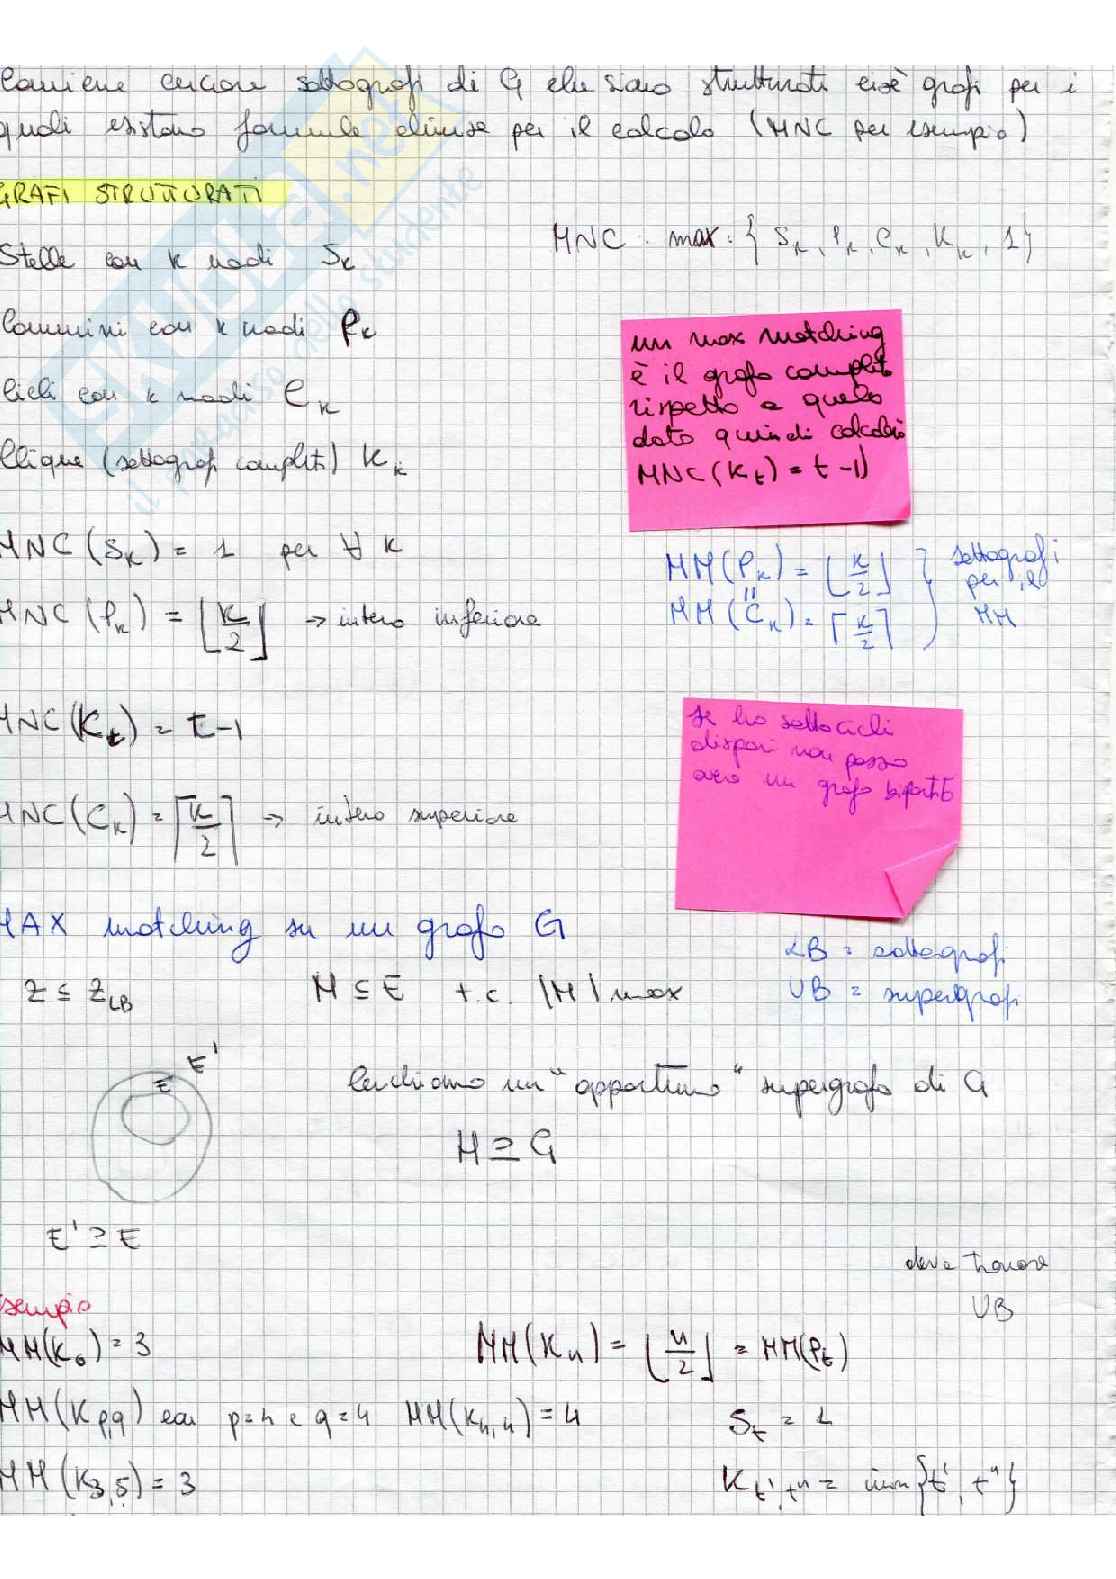 Conviene cercare sottografi di G che siano strutturati cioè grafi per i
quali esistono formule chiuse per il calcolo (MNC per esempio)
GRAFI STRUTTURATI
MNC . max . { Sk, Pk, Ck, Kk, 1}
Stelle con k nodi Sk
Cammini con k nodi Pk
Cicli con k nodi Ck
Clique (sottografi completi) Kk
un max matching
è il grafo completo
rispetto a quello
dato quindi calcolo
MNC(Kt) = t-1)
MNC (Sk) = 1 per ∀ k
MNC (Pk) = ⌊k/2⌋ → intero inferiore
MM(Pk) = ⌊k/2⌋ } sottografi
per il
MM(Ck) = ⌈k/2⌉ MM
MNC(Kt) = t-1
se ho sottocicli
dispari non posso
avere un grafo bipartito
MNC(Ck) = ⌈k/2⌉ → intero superiore
MAX matching su un grafo G
LB = sottografi
Z ≤ ZLB M ⊆ E t.c. |M| max
UB = supergrafi
E E'
Cerchiamo un "opportuno" supergrafo di G
H ⊇ G
E' ⊇ E
deve trovare
UB
Esempio
MM(K6) = 3
MM(Kn) = ⌊n/2⌋ = MM(Pt)
MM(Kp,q) con p=4 e q=4 MM(K4,4) = 4
St = 1
MM(K3,5) = 3
Kt',t" = min{t', t"}
skuola.net
il paradiso dello studente